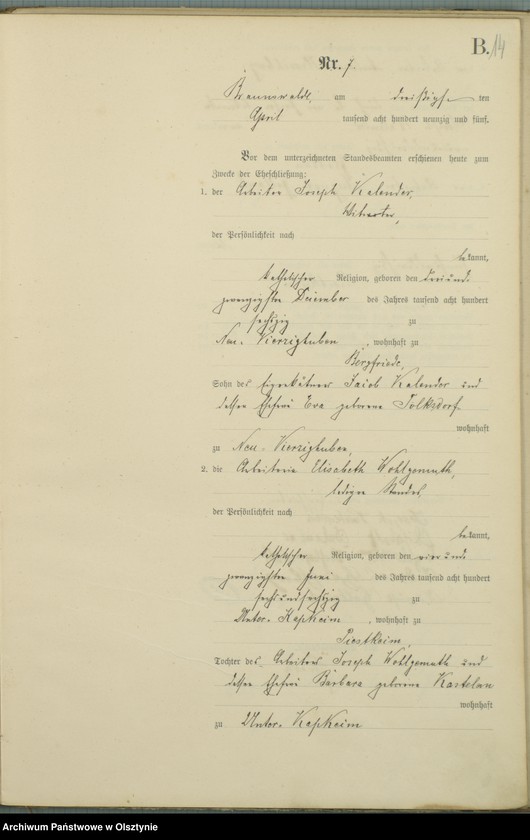 B. 14
Nr. 7.
Braunswalde, am dreißigsten
April tausend acht hundert neunzig und fünf.
Vor dem unterzeichneten Standesbeamten erschienen heute zum
Zwecke der Eheschließung:
1. der Arbeiter Joseph Kalender,
Witwer,
der Persönlichkeit nach
bekannt,
katholischer Religion, geboren den dreiund
zwanzigsten Dezember des Jahres tausend acht hundert
sechzig zu
Neu-Vierzighuben, wohnhaft zu
Bergfriede,
Sohn des Eigenkätners Jacob Kalender und
dessen Ehefrau Eva geborene Tolksdorf
wohnhaft
zu Neu-Vierzighuben,
2. die Arbeiterin Elisabeth Wohlgemuth,
ledigen Standes,
der Persönlichkeit nach
bekannt,
katholischer Religion, geboren den vierund
zwanzigsten Juni des Jahres tausend acht hundert
sechsundsechzig zu
Unter-Kapkeim, wohnhaft zu
Piestkeim,
Tochter des Arbeiters Joseph Wohlgemuth und
dessen Ehefrau Barbara geborene Kastelan
wohnhaft
zu Unter-Kapkeim
Archiwum Państwowe w Olsztynie